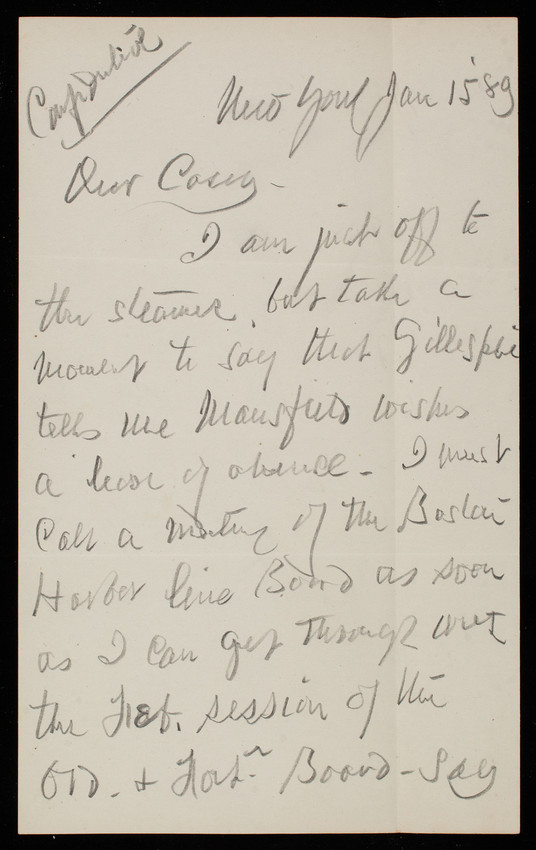 Confidential
New York Jan 15 89
Dear Casey -
I am just off to
the steamer, but take a
moment to say that Gillespie
tells me Mansfield wishes
a leave of absence - I must
Call a meeting of the Boston
Harbor line Board as soon
as I can get through with
the Feb. session of the
Ord. & Fort.n Board - Say